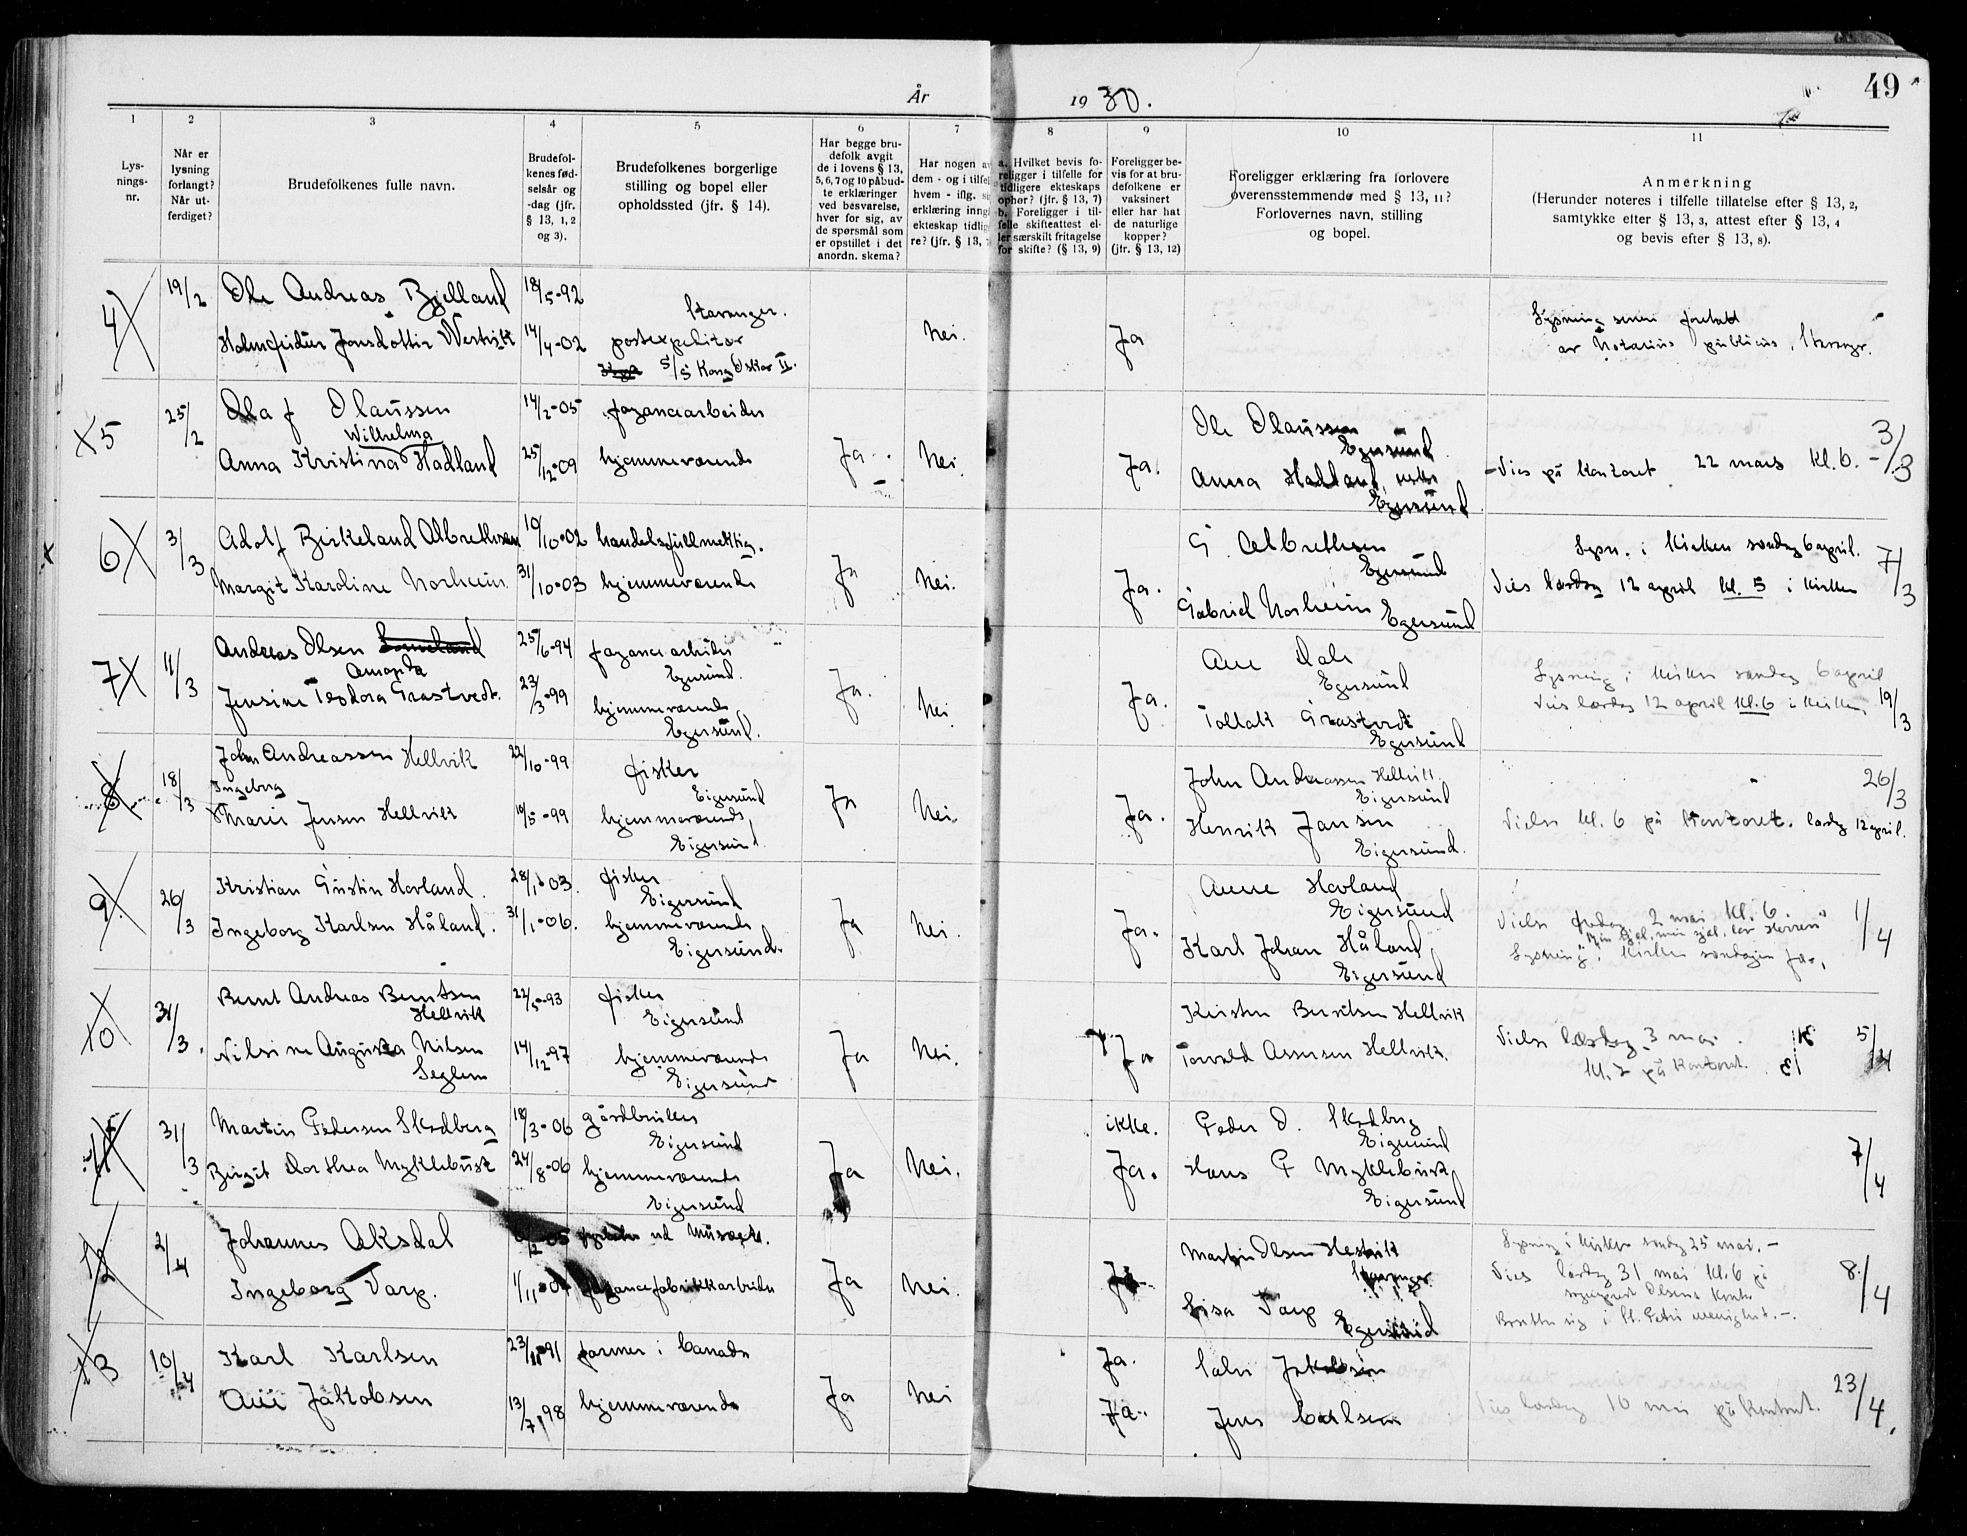 49
År 1930.
1 2 3 4 5 6 7 8 9 10 11
Lys-
nings-
nr.
Når er
lysning
forlangt?
Når ut-
ferdiget?
Brudefolkenes fulle navn.
Brudefol-
kenes fød-
selsår og
-dag (jfr.
§ 13, 1, 2
og 3).
Brudefolkenes borgerlige
stilling og bopel eller
opholdssted (jfr. § 14).
Har begge bru-
defolk avgit
de i lovens § 13,
5, 6, 7 og 10 påbud-
te erklæringer
ved besvarelse,
hver for sig, av
de spørsmål som
er opstillet i det
anordn. skema?
Har nogen a
dem - og i tilfel
hvem - iflg. s
erklæring inng
ekteskap tidlig
re? (jfr. § 13,
a. Hvilket bevis fo-
religger i tilfelle for
tidligere ekteskaps
ophør? (jfr. § 13, 7)
b. Foreligger i til-
felle skifteattest el-
ler særskilt fritagelse
for skifte? (§ 13, 9)
Foreligger be-
vis for at bru-
defolkene er
vaksinert
eller har hat
de naturlige
kopper?
(jfr. § 13, 12)
Foreligger erklæring fra forlovere
overensstemmende med § 13, 11?
Forlovernes navn, stilling
og bopel.
Anmerkning
(Herunder noteres i tilfelle tillatelse efter § 13, 2,
samtykke efter § 13, 3, attest efter § 13, 4
og bevis efter § 13, 8).
4 19/2 Ole Andreas Bjelland 18/5-92
Stavanger.
Jonsdottir Westvik 14/4-02 postexpeditør Nei. Ja
S/S Kong Oskar II.
Lysning
av Notarius publicus, Stavanger.
5 25/2 Olaf Olaussen 14/2-05 fayancearbeider
Wilhelma
Anna Kristina Hadland 25/12-09 hjemmeværende Ja Nei Ja.
Ole Olaussen
Egersund
Anna Hadland,
Egersund
Vies på kontoret 22 mars kl. 6. 3/3
6 3/3 Adolf Birkeland Albrethsen 19/10-02 handelsfullmektig.
Margit Karoline Norheim 31/10-03 hjemmeværende Ja Nei. Ja.
G. Albrethsen
Egersund
Gabriel Norheim Egersund
Lysn. i kirken søndag 6 april. 7/3
Vies lørdag 12 april kl. 5 i kirken
7 11/3 Andreas Olsen 25/6-94 fayancearbeider
Egersund.
Amanda
Jensine Teodora Grastvedt. 23/3-99 hjemmeværende Ja. Nei Ja.
Egersund.
Egersund
Tollak Grastvedt
Egersund
Lysning i kirken søndag 6 april
Vies lørdag 12 april kl. 6 i kirken. 19/3
8 18/3 John Andreassen Hellvik 22/10-99 fisker
Eigersund
Ingeborg
Marie Jensen Hellvik 10/5-99 hjemmeværende Ja Nei. Ja.
Eigersund
John Andreassen Hellvik.
Eigersund
Henrik Jansen
Eigersund.
26/3
Vielse kl. 6 på kontoret. lørdag 12 april.
9 26/3 Kristian Gustin Hovland. 28/1-03. fisker
Eigersund
Ingeborg Karlsen Håland. 31/1-06. hjemmeværende Ja Nei. Ja.
Eigersund.
Hovland
Eigersund
Karl Johan Håland
Eigersund
Vielse fredag 2 mai kl. 6.
"Min sjel, min sjel, lov Herren"
Lysning i kirken søndagen før. 1/4
10 31/3. Bernt Andreas Berntsen 22/5-93 fisker
Hellvik Eigersund
Nilsine Augusta Nilsen 14/12-97 hjemmeværende Ja Nei. Ja
Seglem Eigersund
Kirsten Berntsen Hellvik
Torvald Assersen Hellvik.
Vielse lørdag 3 mai. 5/4
kl. 7 på kontoret.
11 31/3 Martin Pedersen Skadberg 18/3-06 gårdbruker
Eigersund
Birgit Dorthea Myklebust 24/8-06 hjemmeværende Ja Nei. ikke. Ja.
Eigersund
Peder O. Skadberg
Eigersund
Hans P Myklebust
Eigersund
7/4
12 2/4 Johannes Aksdal
Ingeborg Tarp. fayancefabrikkarbeider Ja Nei.
Martin Olsen Hestvik
Stavanger
Lisa Tarp
Egersund
Lysning i kirken søndag 25 mai.
Vies lørdag 31 mai kl. 6 på
sogneprest Olsens kontor
Bosette sig i St. Petri menighet. 8/4
13 10/4 Karl Karlsen 23/11-91 farmer i Canada Ja.
Jakobsen 13/7-98 hjemmeværende Ja Nei Ja.
Jakobsen
Jens Carlsen
Vies lørdag 10 mai på kontoret. 23/4.